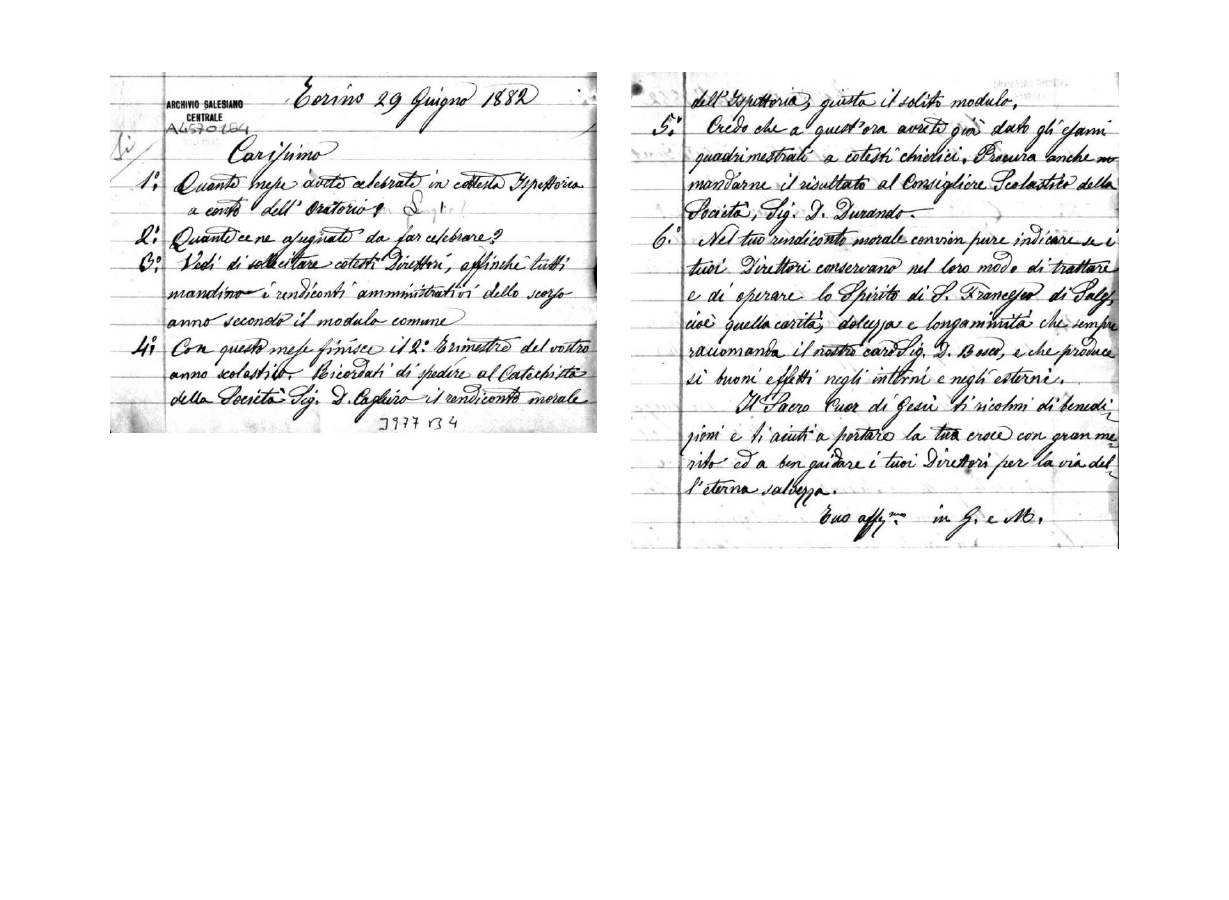 Torino 29 Giugno 1882
ARCHIVIO SALESIANO
CENTRALE
A4570184
Carissimo
1º. Quante messe avete celebrate in cotesta Ispettoria
a conto dell' Oratorio?
2º. Quante ce ne assegnate da far celebrare?
3º. Vedi di sollecitare cotesti Direttori, affinchè tutti
mandino i rendiconti amministrativi dello scorso
anno secondo il modulo comune
4º. Con questo mese finisce il 2º. Trimestre del vostro
anno scolastico. Ricordati di spedire al Catechista
della Società Sig. D. Cagliero il rendiconto morale
3977 B 4
dell' Ispettoria, giusta il solito modulo.
5º. Credo che a quest' ora avrete già dato gli esami
quadrimestrali a cotesti chierici. Procura anche
mandarne il risultato al Consigliere Scolastico della
Società, Sig. D. Durando.
6º. Nel tuo rendiconto morale convien pure indicare se i
tuoi Direttori conservano nel loro modo di trattare
e di operare lo Spirito di S. Francesco di Sales,
cioè quella carità, dolcezza e longanimità che sempre
raccomanda il nostro caro Sig. D. Bosco, e che produce
sì buoni effetti negli interni e negli esterni.
Il Sacro Cuor di Gesù ti ricolmi di benedi-
zioni e ti aiuti a portare la tua croce con gran me-
rito ed a ben guidare i tuoi Direttori per la via del-
l'eterna salvezza.
Tuo affezmo. in G. e M.